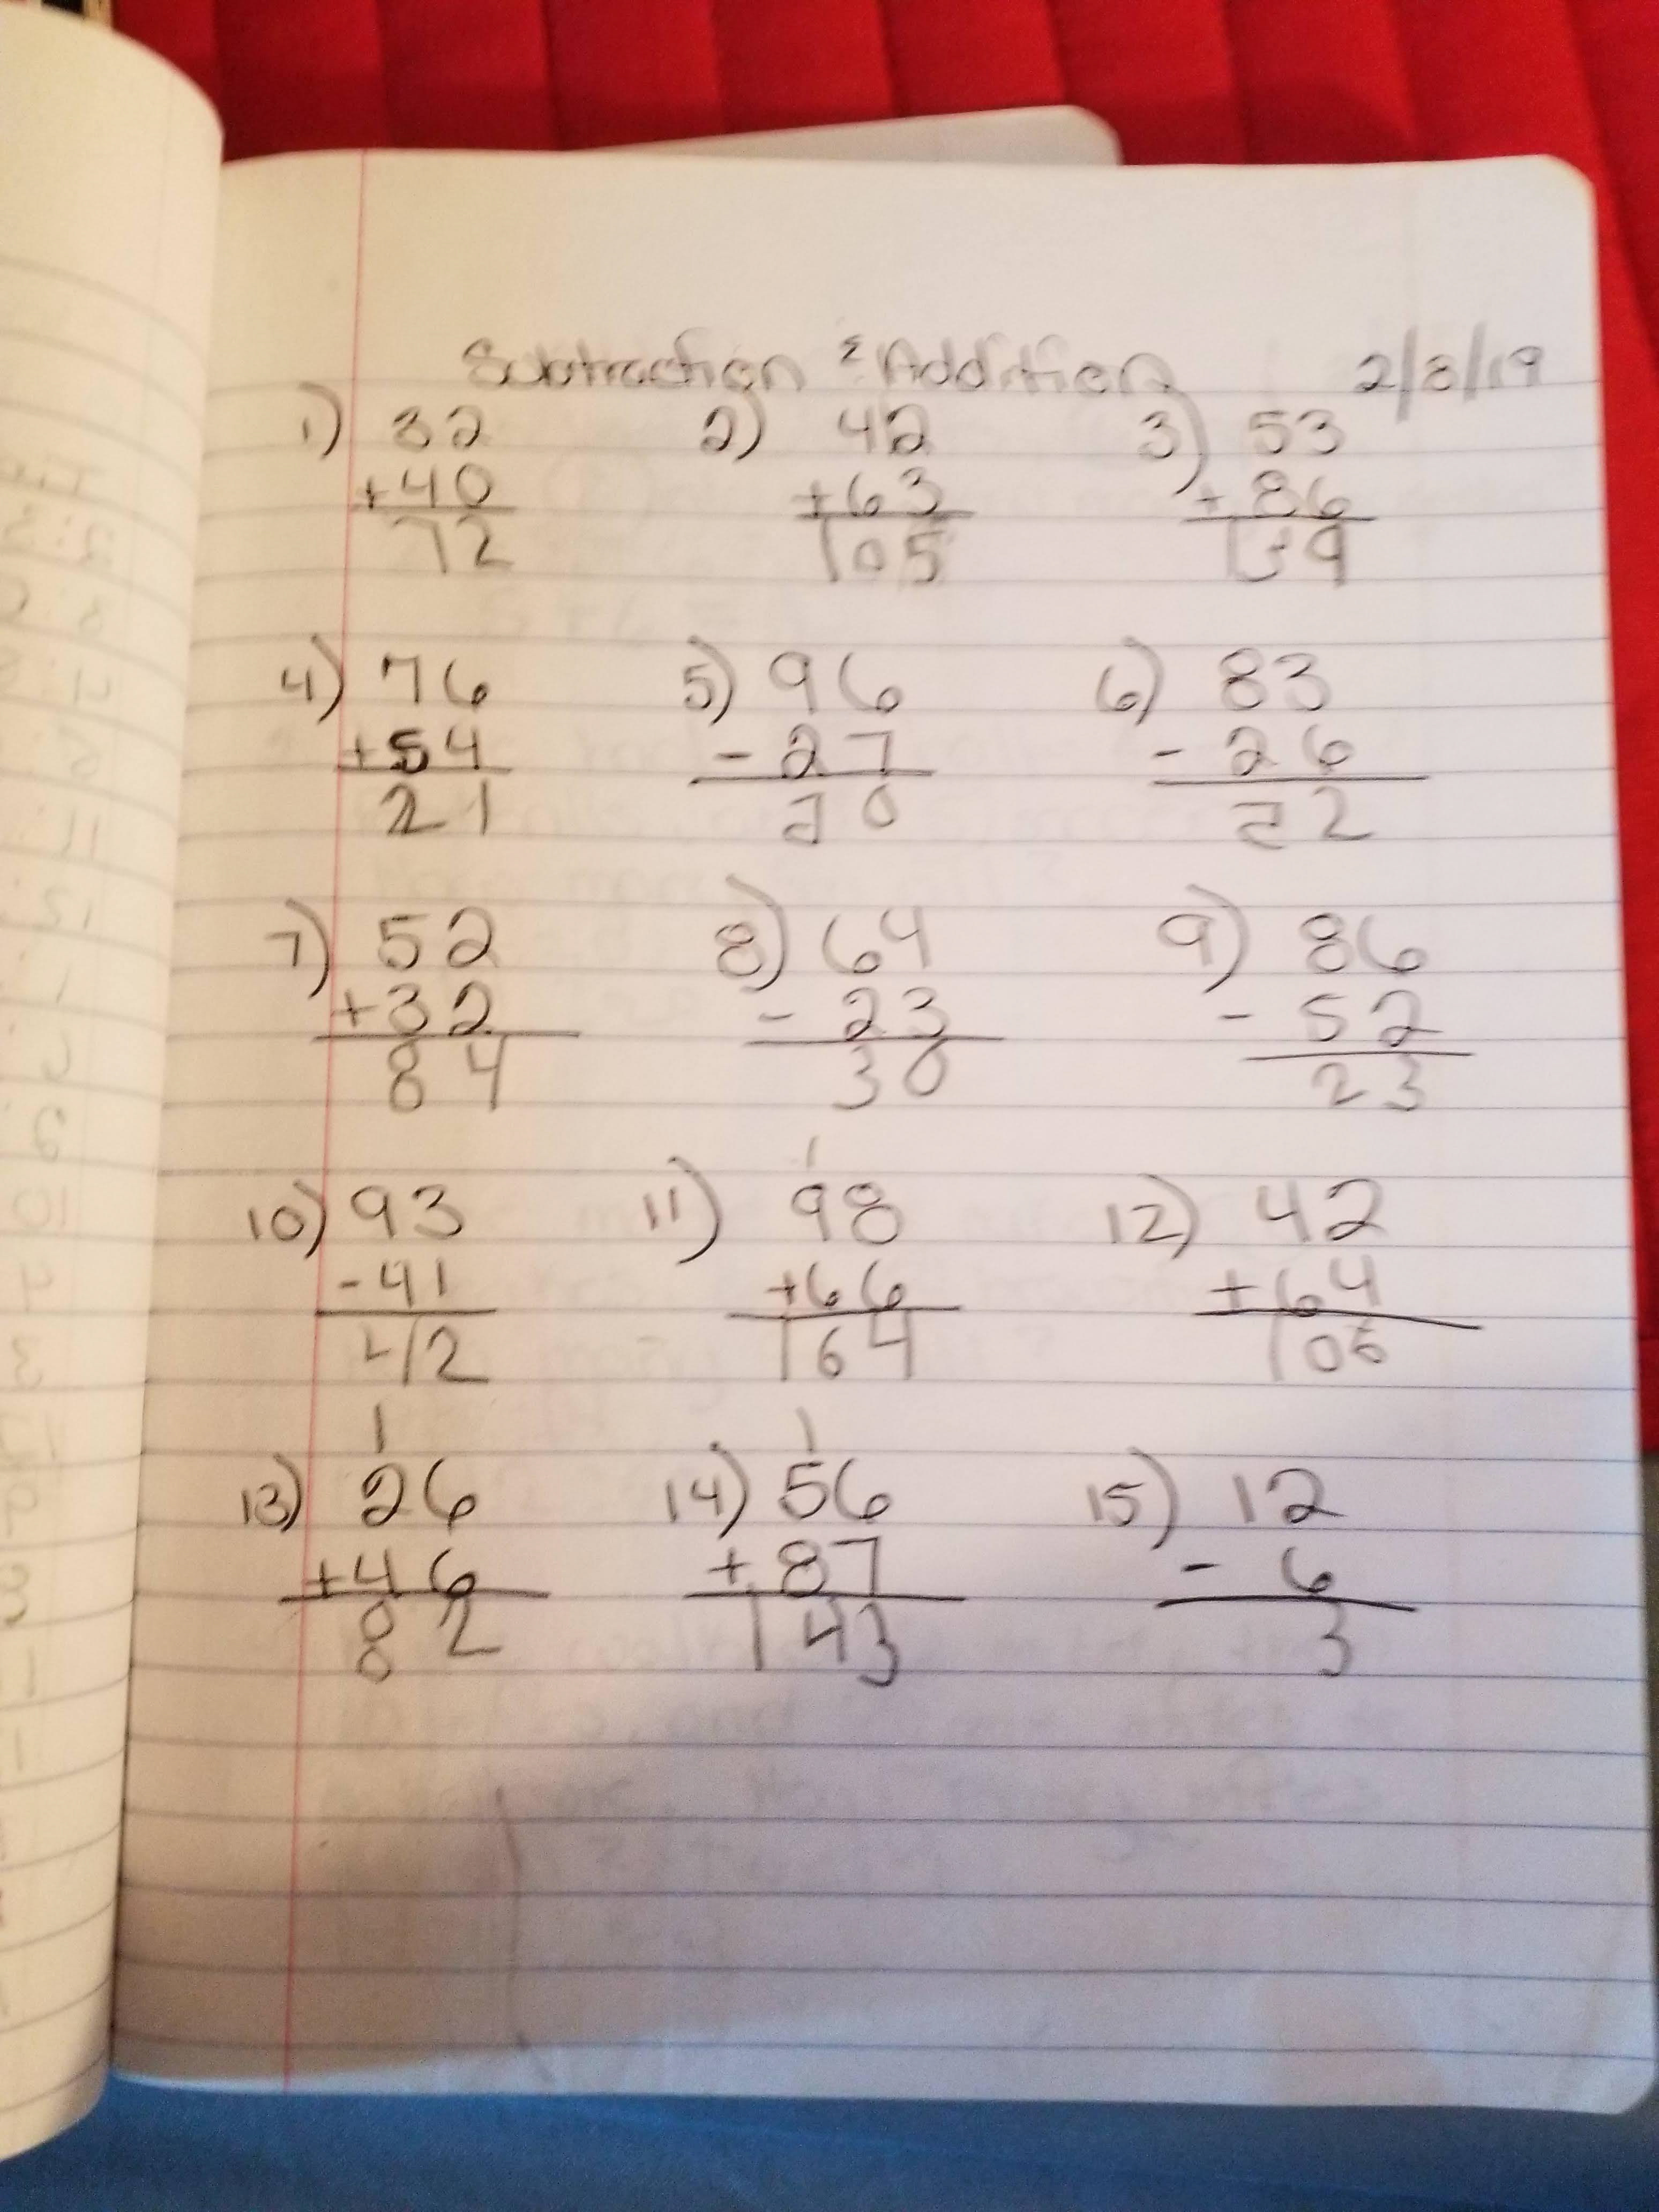 Subtraction & Addition 2/8/19
1) 32 2) 42 3) 53
+40 +63 +86
72 105 139
4) 76 5) 96 6) 83
+54 - 27 - 26
21 70 22
7) 52 8) 64 9) 86
+32 - 23 - 52
84 30 23
1
10) 93 11) 98 12) 42
-41 +66 +64
42 164 106
1 1
13) 26 14) 56 15) 12
+46 + 87 - 6
82 143 3